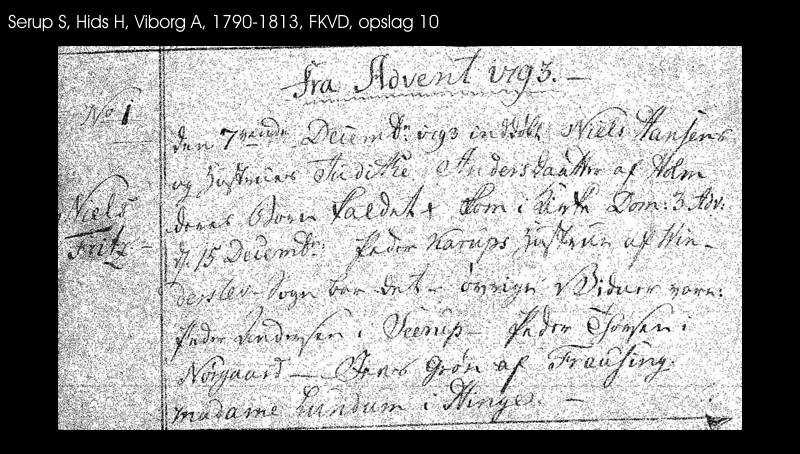 Serup S, Hids H, Viborg A, 1790-1813, FKVD, opslag 10
Fra Advent 1793.
No 1
den 7 Decembr: 1793 Niels Hansens
og Hustrues Judithe Andersdaatter af Holm
Niels
deres Barn kaldet + kom i Kirke Dom: 3 Adv:
Fritz
d. 15 Decembr: Peder Karups Hustrue af Hin-
derslev Sogn bar det - øvrige Vidner vare:
Peder Andersen i Seerup - Peder Jørsen i
Nørgaard - Jens Grøn af Frausing.
madame Lundum i Hinge. -